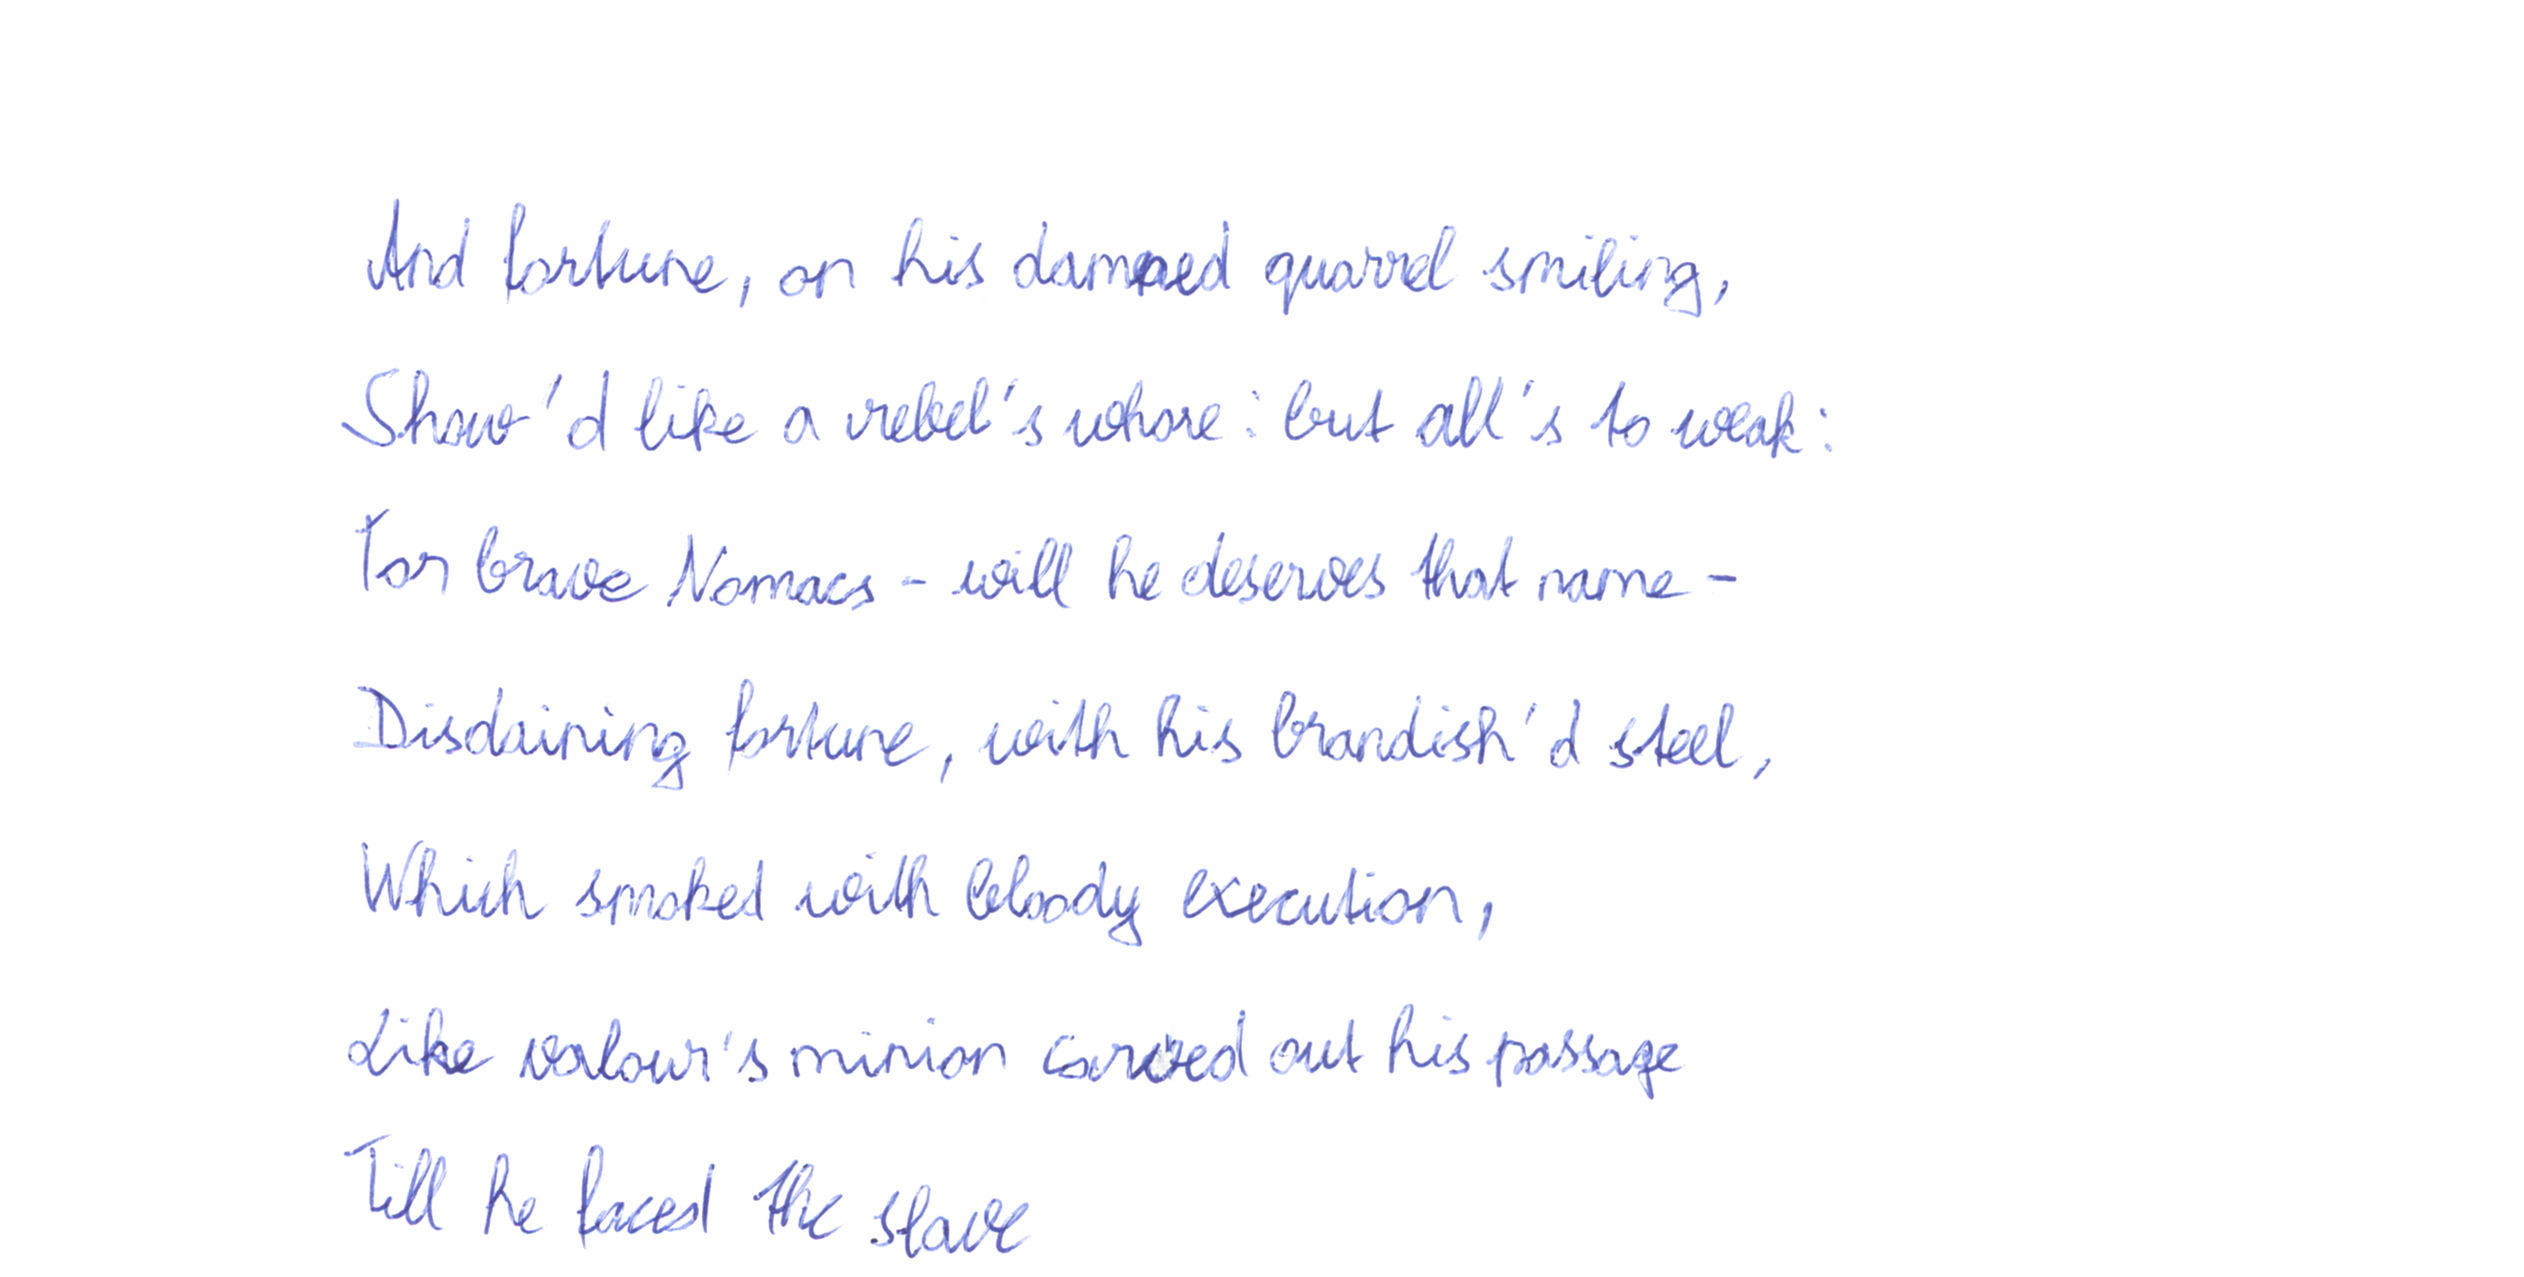 And fortune, on his damned quarrel smiling,
Show'd like a rebel's whore: but all's to weak:
For brave Nomacs - will he deserves that name -
Disdaining fortune, with his brandish'd steel,
Which smoked with bloody execution,
Like valour's minion carved out his passage
Till he faced the slave